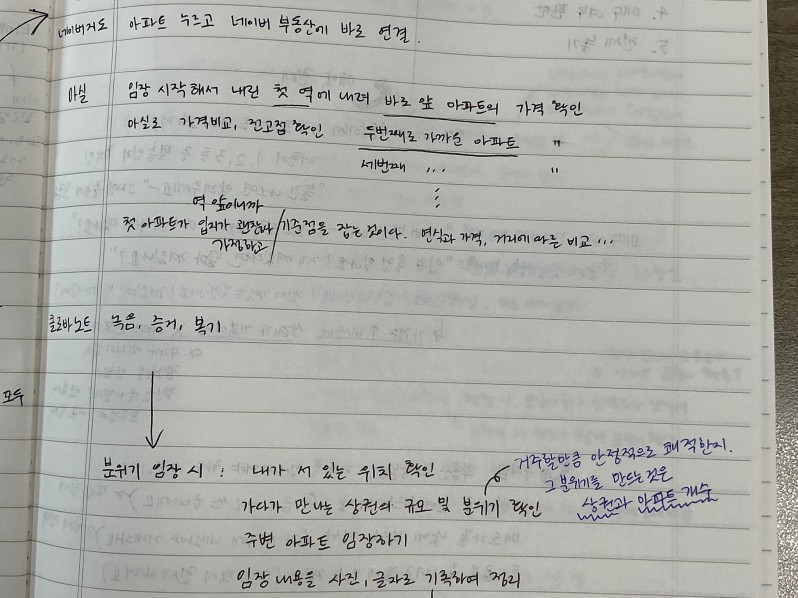 네이버지도 아파트 누르고 네이버 부동산에 바로 연결.
아실 임장 시작해서 내린 첫 역에 내려 바로 앞 아파트의 가격 확인
아실로 가격비교, 전고점 확인 두번째로 가까운 아파트 "
세번째 ... "
역 앞이니까
첫 아파트가 입지가 괜찮다 / 기준점을 잡는 것이다. 연식과 가격, 거리에 따른 비교...
가정하고
클로바노트 녹음, 증거, 복기
모두
분위기 임장 시 : 내가 서 있는 위치 확인
거주할만큼 안정적으로 쾌적한지.
그 분위기를 만드는 것은
상권과 아파트 개수
가다가 만나는 상권의 규모 및 분위기 확인
주변 아파트 임장하기
임장 내용을 사진, 글자로 기록하여 정리